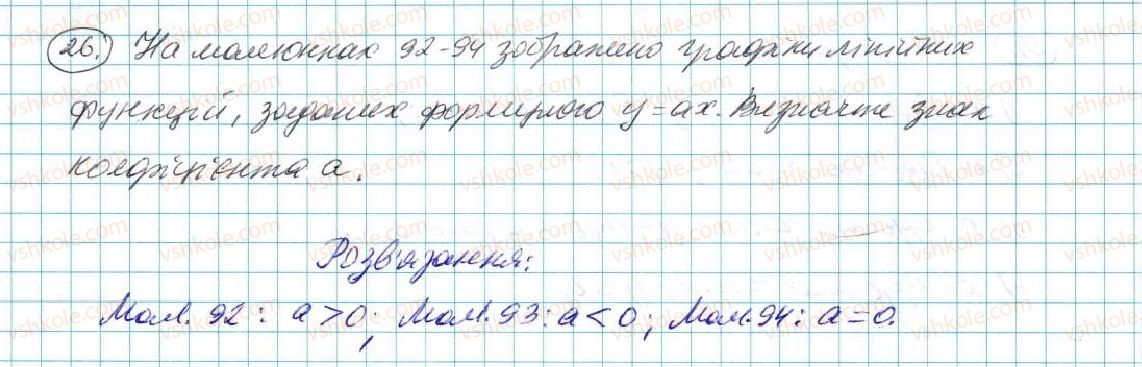 26. На малюнках 92-94 зображено графіки лінійних
функцій, заданих формулою y=ax. Визначте знак
коефіцієнта a.
Розв'язання:
Мал. 92: a>0; Мал. 93: a<0; Мал. 94: a=0.
vshkole.com